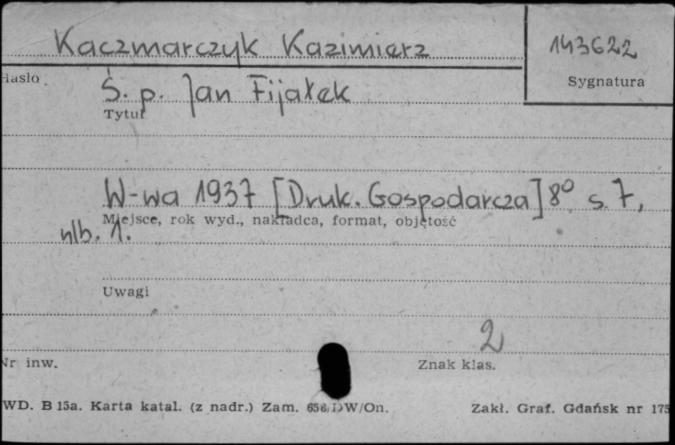 Kaczmarczyk Kazimierz
143622
Hasło
Sygnatura
Ś. p. Jan Fijałek
Tytuł
W-wa 1937 [Druk. Gospodarcza] 8° s. 7,
Miejsce, rok wyd., nakładca, format, objętość
nlb. 1.
Uwagi
2
Nr inw.
Znak klas.
WD. B 15a. Karta katal. (z nadr.) Zam. DW/On.
Zakł. Graf. Gdańsk nr 175